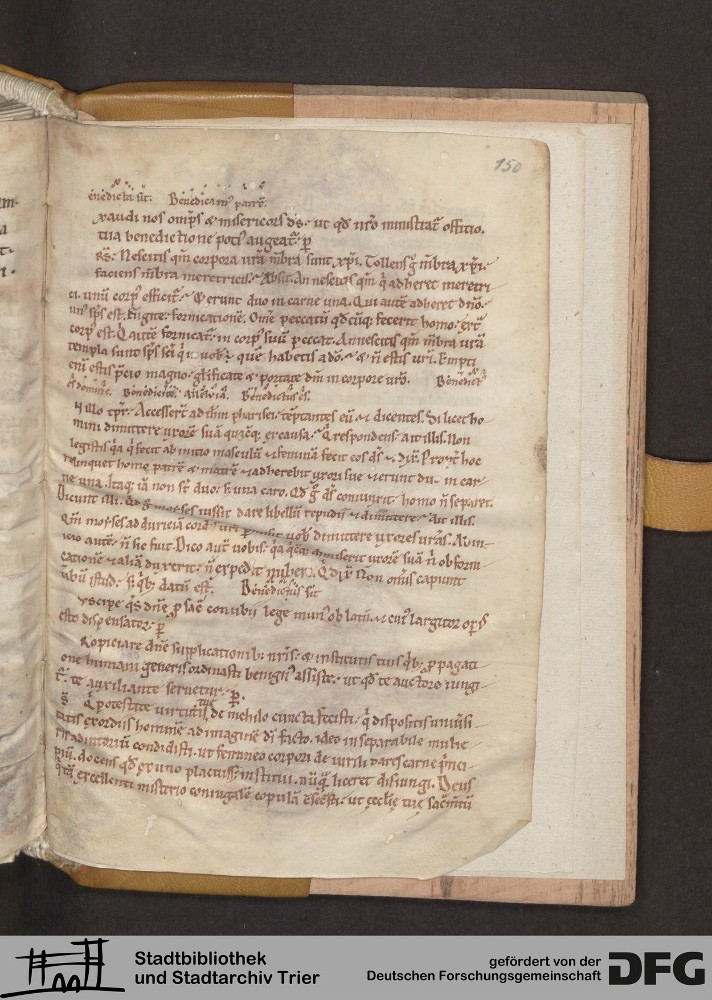 150
enedicta sit. Benedicam᷒ patrē.
xaudi nos omps & misericors ds. ut qd nr̄o ministrat᷑ offitio.
tua benedictione poti᷒ augeat᷑. p̱
Nescitis qm̄ corpora ur̄a m̄bra sunt xp̄i. Tollens g̊ m̄bra xp̄i.
faciens m̄bra meretricis. Absit. An nescitis qm̄ q̇ adheret meretri
ci. unū corp᷒ efficit᷑. & erunt duo in carne una. Qui autē adheret dn̄o.
un᷒ sp̄s est. Fugite fornicationē. Om̄e peccatū qdcūq; fecerit homo. ext̄
corp᷒ est. Q autē fornicat᷑. in corp᷒ suū peccat. An nescitis qm̄ m̄bra ur̄a
templa sunt sp̄s sc̄i quē habetis a dō. & n̄ estis ur̄i. Empti
enī estis p̄cio magno. glificate & portate dm̄ in corpore ur̄o. Benedict
Benedictus es.
illo tp̄r. Accesserē ad ihm pharisei. tēptantes eū. & dicentes. Si licet ho
mini dimittere uxorē suā quacūq; ex causa. Q respondens ait illis. Non
legistis q̇a q̇ fecit ab initio masculū & feminā fecit eos Propt̄ hoc
relinquet homo patrē & matrē & adherebit uxori sue & erunt duo in car
ne una. Itaq; iā non st̄ duo. s; una caro. Qd g̊ ds̄ coniunxit homo n̄ separet.
Dicunt illi. Qd g̊ moyses iussit dare libellū repudii & dimittere. Ait illis.
Qm̄ moyses ad duriciā cordis ur̄i permisit uob̄ dimittere uxores ur̄as. Ab in
icio autē n̄ sic fuit. Dico aut̄ uobis. q̇a q̇cūq; dimiserit uxorē suā n̄ ob forni
cationē & aliā duxerit n̄ expedit nubere. Non om̄s capiunt
uerbū istud. s; q̇b; datū est. Benedictus sit
uscipe q̄s dn̄e p̱ sacē conubii lege mun᷒ oblatū. & cui᷒ largitor op̱is
esto dispensator. p̱
ropiciare dn̄e supplicationib; nr̄is. & institutis tuis q̇b; p̱pagati
one humani generis ordinasti benign᷒ assiste. ut qd te auctore iungi
t᷑. te auxiliante seruetur. p̱.
Q potestate uirtutis tuę de nichilo cuncta fecisti. q̇ dispositis uniusi
tatis exordiis hominē ad imaginē di factο. ideo inseparabile mulie
ris adiutoriū condidisti. ut femineo corpori de uirili dares carne p̄nci
piū. docens qd ex uno placuiss; institui. nūq̄ liceret disiungi. Deus
q̇ tā excellenti misterio coniugalē copulā ut ecclię tuę sacm̄tū
Stadtbibliothek
und Stadtarchiv Trier
gefördert von der
Deutschen Forschungsgemeinschaft
DFG